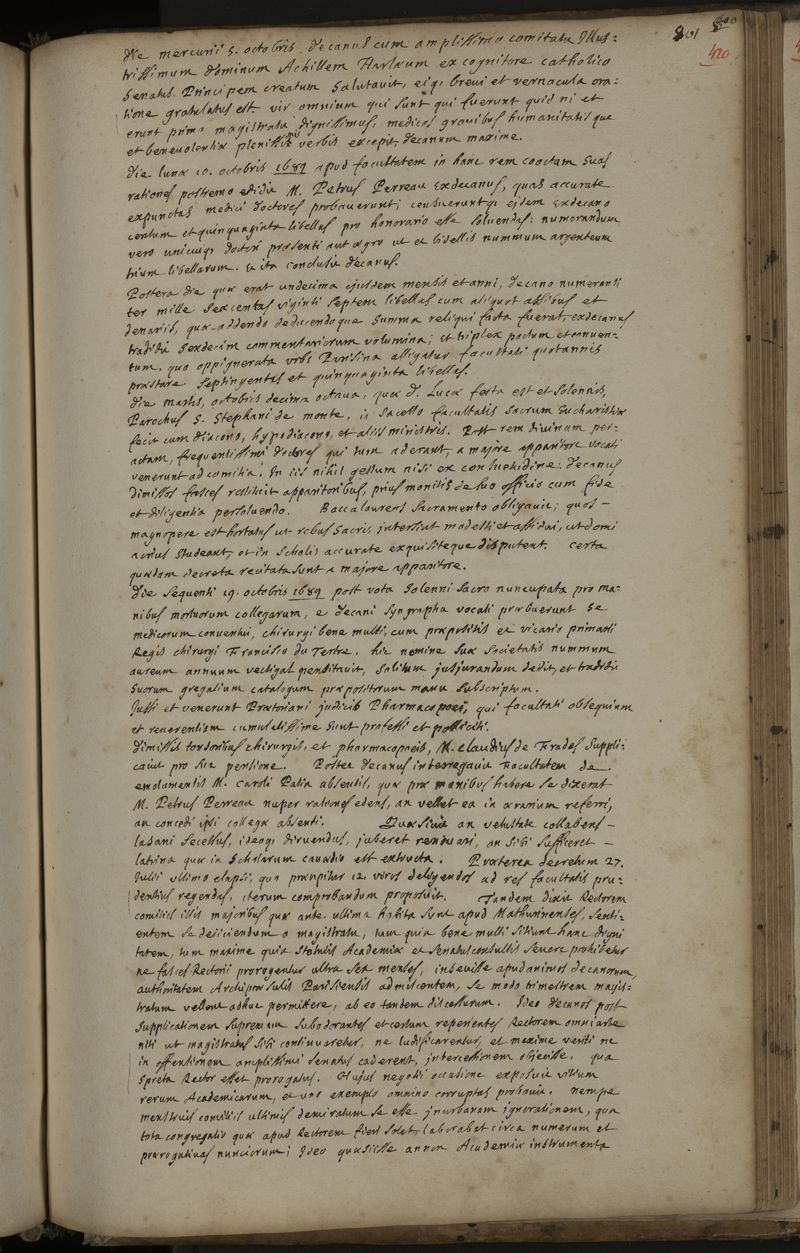 801 800
420
die mercurii 5. octobris. decanus cum amplissimo comitatu Illus=
trissimum dominum Achillem Harlæum ex cognitore catholico
Senatus Principem creatum salutavit, eiq; brevi et vernacula ora=
tione gratulatus est. vir omnium qui sunt qui fuerunt quid ni et
erunt primo magistratu dignissimus, medicos gravibus humanitatis que
et benevolentiæ plenissimis verbis excepit, decanum maxime.
die lunæ 10. octobris 1689 apud facultatem in hanc rem coactam suas
rationes postremo edidit M. Petrus Perreau Exdecanus, quas accurate
expunctas medici doctores probaverunt; censueruntq; eidem Exdecano
centum et quinquaginta libellas pro honorario esse solvendas; numerandum
vero unicuiq; doctori præsenti aut ægro ut et bidellis nummum argenteum
trium libellarum. et ita conclusit decanus.
Postera die quæ erat undecima ejusdem mensis et anni, decano numeravit
ter mille sexcentas viginti septem libellas cum aliquot assibus et
denariis, quæ addendo deducendoque summa reliqui facta fuerat, exdecanus
tradidit sexdecim commentariorum volumina; et triplex pactum et conven=
tum, quo oppignerata urbs Parisina alligatur facultati quotannis
præstare septingentas et quinquaginta libellas.
die martis, octobris decima octava, quæ D. Lucæ festa est et solennis,
Parochus S. Stephani de monte, in sacello facultatis sacrum Eucharistiæ
fecit cum diacono, hypodiacono, et aliis ministris. Post rem divinam per=
actam, frequentissimi doctores qui tum aderant, a majore apparitore vocati
venerunt ad comitia. In iis nihil gestum nisi ex consuetudine. decanus
dimissos fasces restituit apparitoribus, prius monitis de suo officio cum fide
et diligentia persolvendo. Baccalaureos sacramento obligavit; quos –
magnopere est hortatus ut rebus sacris intersint modesti et assidui, ut domi
acrius studeant, et in scholis accurate exquisiteque disputent. certa
quædam decreta recitata sunt a majore apparitore.
die sequenti 19. octobris 1689 post vota solenni sacro nuncupata pro ma=
nibus mortuorum collegarum, e decani syngrapha vocati præbuerunt se
medicorum conventui, chirurgi bene multi, cum præpositis et vicario primarii
Regis chirurgi Francisco du Tertre. hic nomine suæ societatis nummum
aureum annuum vectigal pensitavit, solitum jusjurandum dedit, et tradidit
suorum gregalium catalogum præpositorum manu subscriptum.
Jussi et venerunt Prætoriani judicis Pharmacopoei, qui facultati obsequium
et reverentiam cumulatissime sunt professi et polliciti.
dimissis tonsoribus chirurgis, et pharmacopoeis, M. claudius de Frades suppli=
cavit pro sua pensione. Postea decanus interrogavit Facultatem de
emolumentis M. Caroli Patin absentis, quæ præ manibus habere se dixerat
M. Petrus Perreau nuper rationes edens, an vellet ea in ærarium referri,
an concedi ipsi collegæ absenti. Quæsivit an vetustate collabens –
labans secessus, ideoq; diruendus, juberet renovari, an sibi sufficeret –
latrina quæ in scholarum cavædio est extructa. Præterea decretum 27.
Julii ultimo elapsi, quo præcipitur 12. viros deligendos ad res facultatis pru=
dentius regendas, iterum comprobandum proposuit. Tandem dixit Rectorem
comitiis illis majoribus quæ ante ultima habita sunt apud Mathurinenses, senti=
entem se dejiciendum a magistratu, tum quia bene multi sitiunt hanc digni
tatem, tum maxime quia statutis Academiæ et senatusconsultis severe prohibetur
ne fasces Rectorii prorogentur ultra sex menses, inseuisse apud animos decanorum,
authoritatem Archipræsulis Parisiensis admiscentem, se modo trimestrem magis=
tratum vellent adhuc permittere, ab eo tandem discessurum. Ideo decanos post
supplicationem supremam subodorantes et certum reperientes Rectorem omni arte
niti ut magistratus sibi continuaretur, ne ludificarentur, et maxime veriti ne
in offensionem amplissimi senatus caderent, intercessionem objecisse, qua
spreta Rector esset prorogatus. Hujus negotii occasione exposuit vitium
rerum Academicarum, et uno exemplo omnino corruptas probavit. nempe
menstruis comitiis ultimis demiratum se esse inurbanam ignorationem, qua
tota congregatio quæ apud Rectorem fieri solet, laborabat circa numerum et
prærogativas nunciorum; Ideo quæsisse annon Academiæ instrumenta